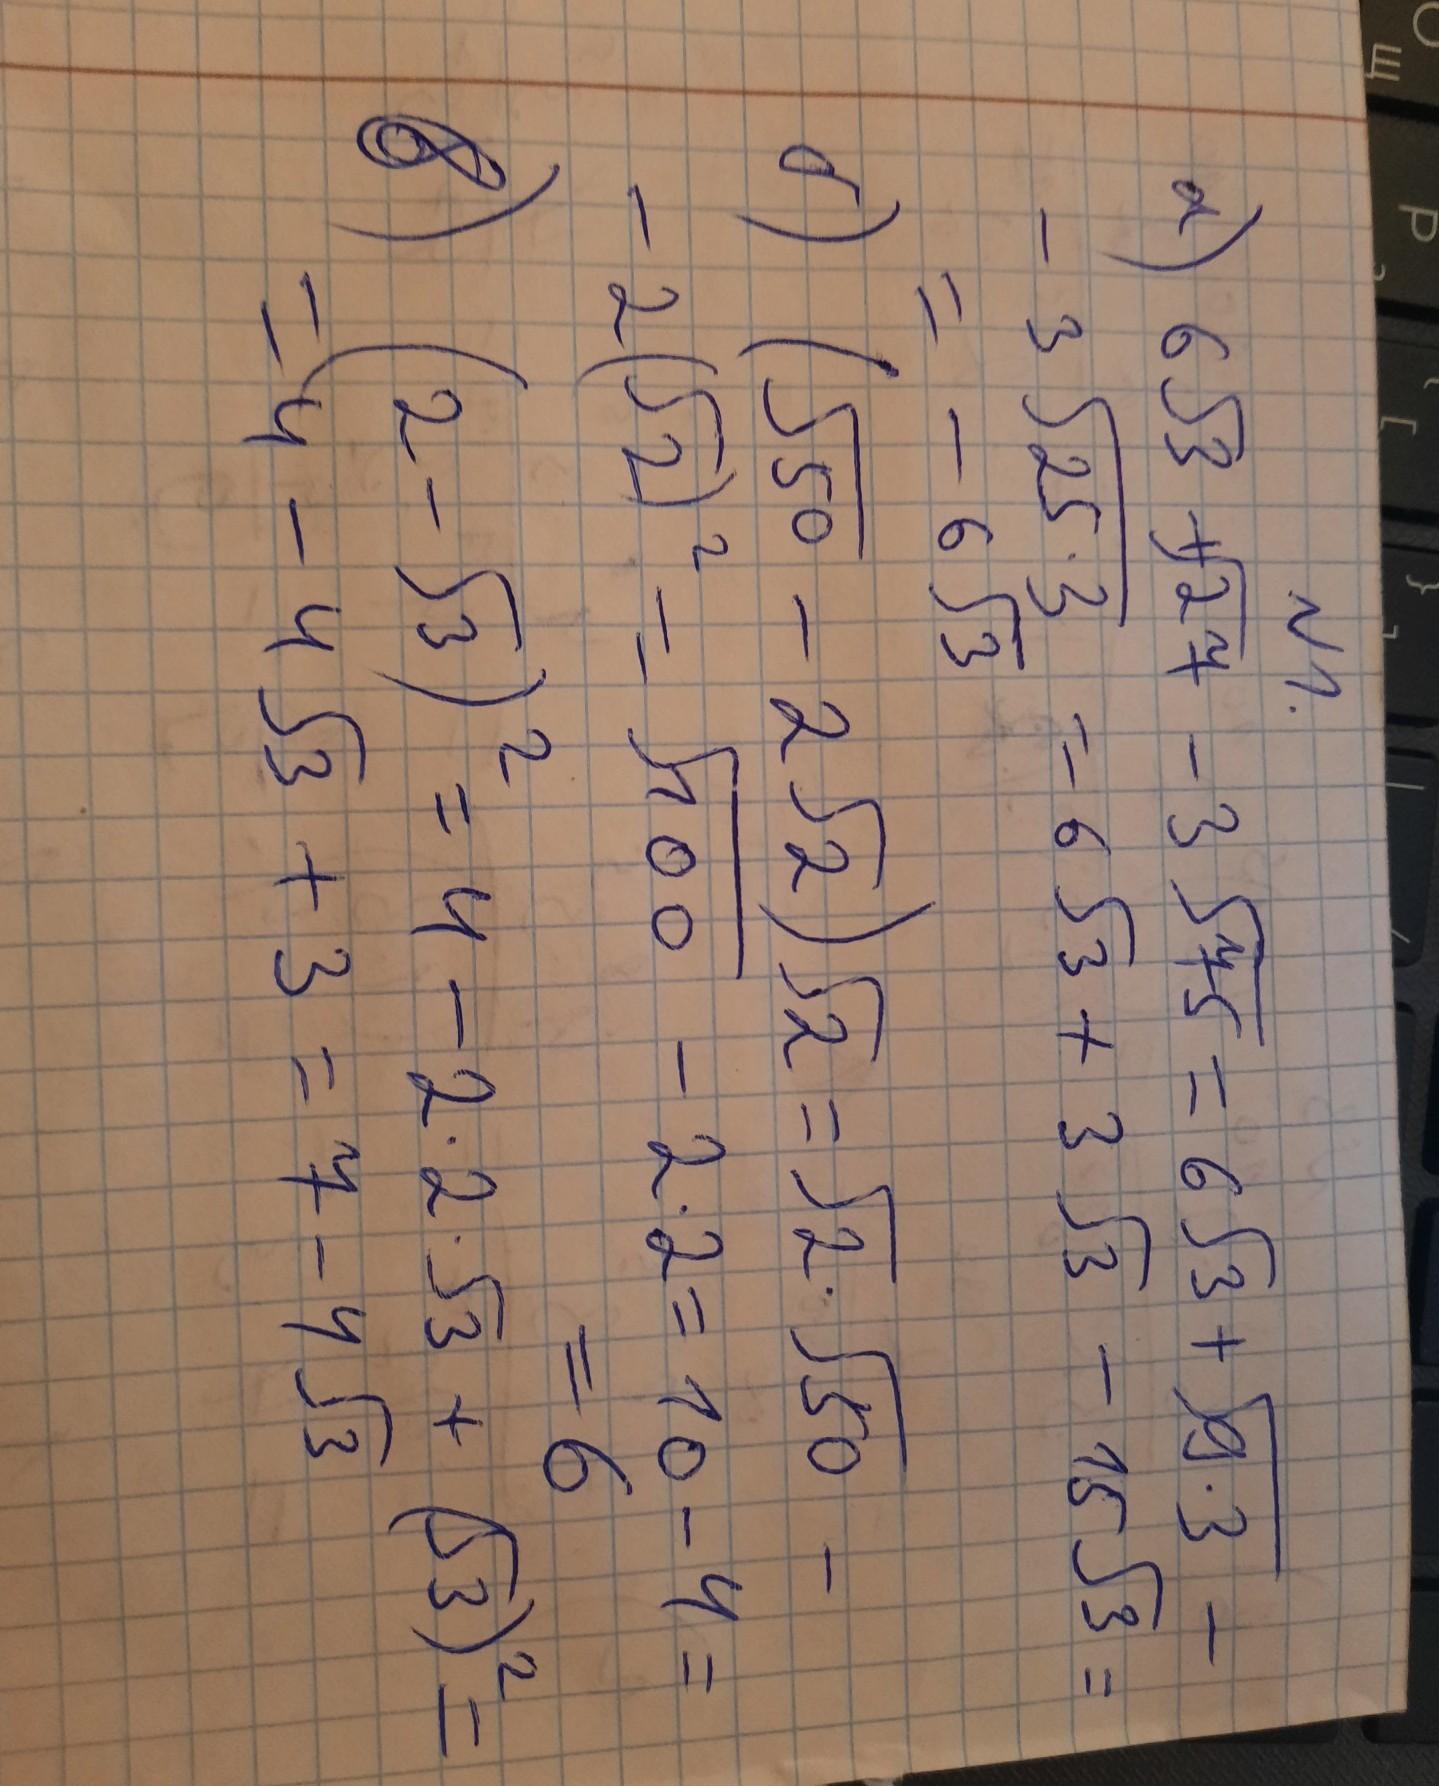 N1.
а) 6√3 + √27 - 3√75 = 6√3 + √9·3 -
- 3√25·3 = 6√3 + 3√3 - 15√3 =
= - 6√3
б) (√50 - 2√2)√2 = √2·√50 -
- 2(√2)² = √100 - 2·2 = 10 - 4 =
= 6
в) (2 - √3)² = 4 - 2·2·√3 + (√3)² =
= 4 - 4√3 + 3 = 7 - 4√3